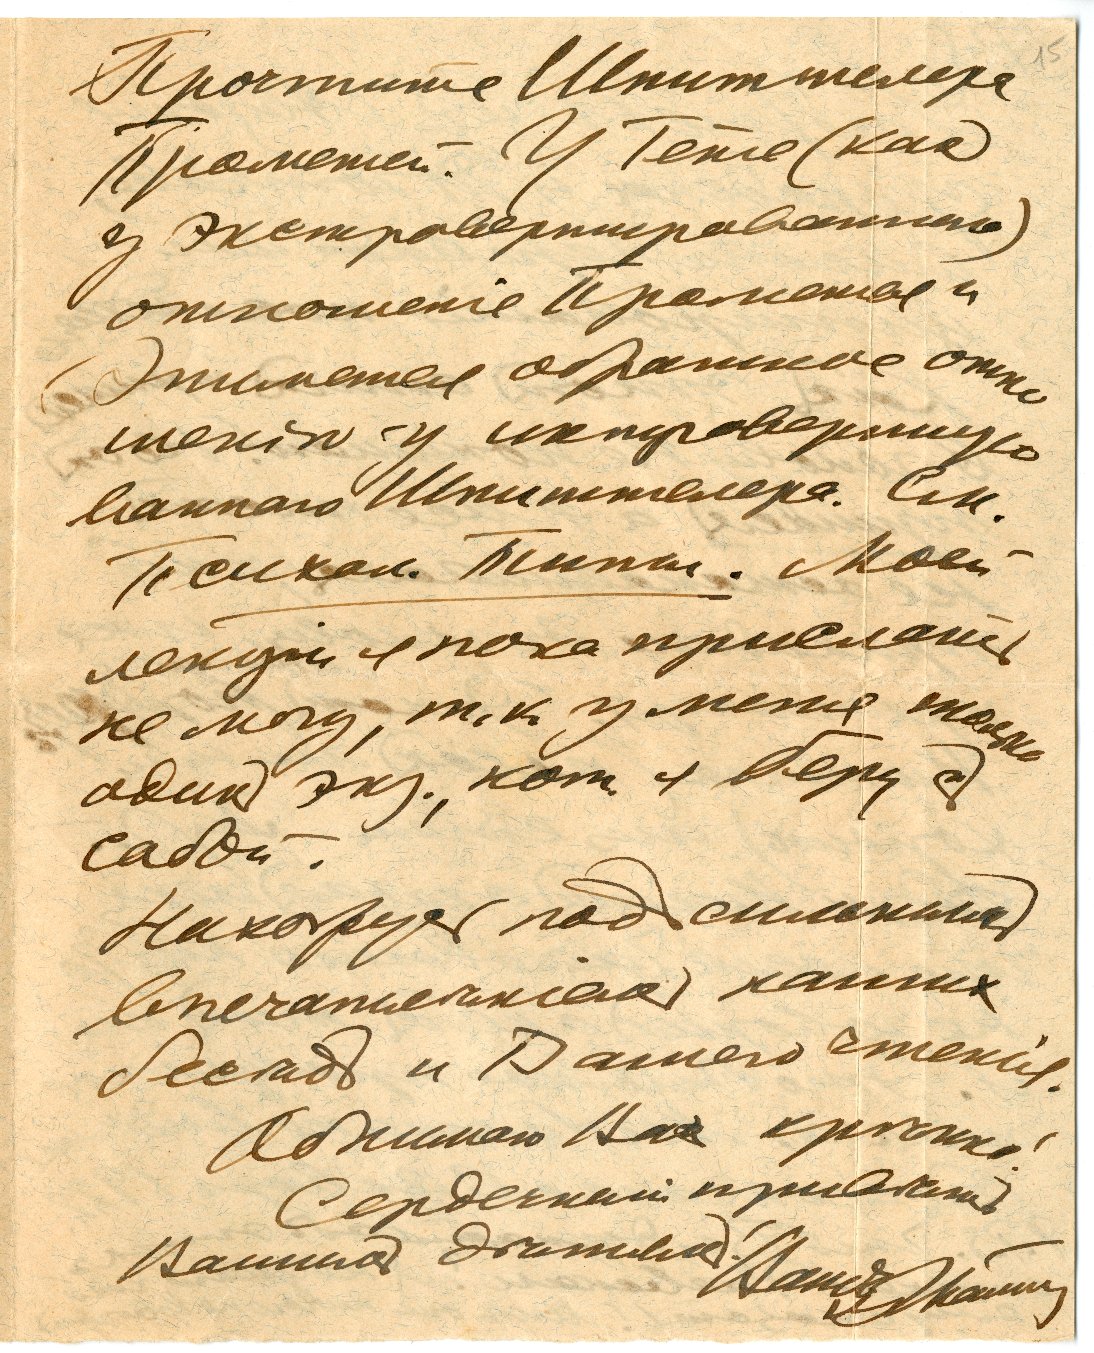 15
Прочтите Шпиттелера
Прометей. У Гёте (какъ
у экстровертированнаго)
отношеніе Прометея и
Эпиметея обратное отно
шенію у интровертиро
ваннаго Шпиттелера. См.
Психол. Типы. Моей
лекціи я пока прислать
не могу, т.к. у меня только
одинъ экз., кот. я беру съ
собой.
Нахожусь подъ сильнымъ
впечатлѣніемъ нашихъ
бесѣдъ и Вашего чтенія.
Обнимаю Васъ крѣпко!
Сердечный привѣтъ
Вашимъ дѣтямъ!
Вашъ